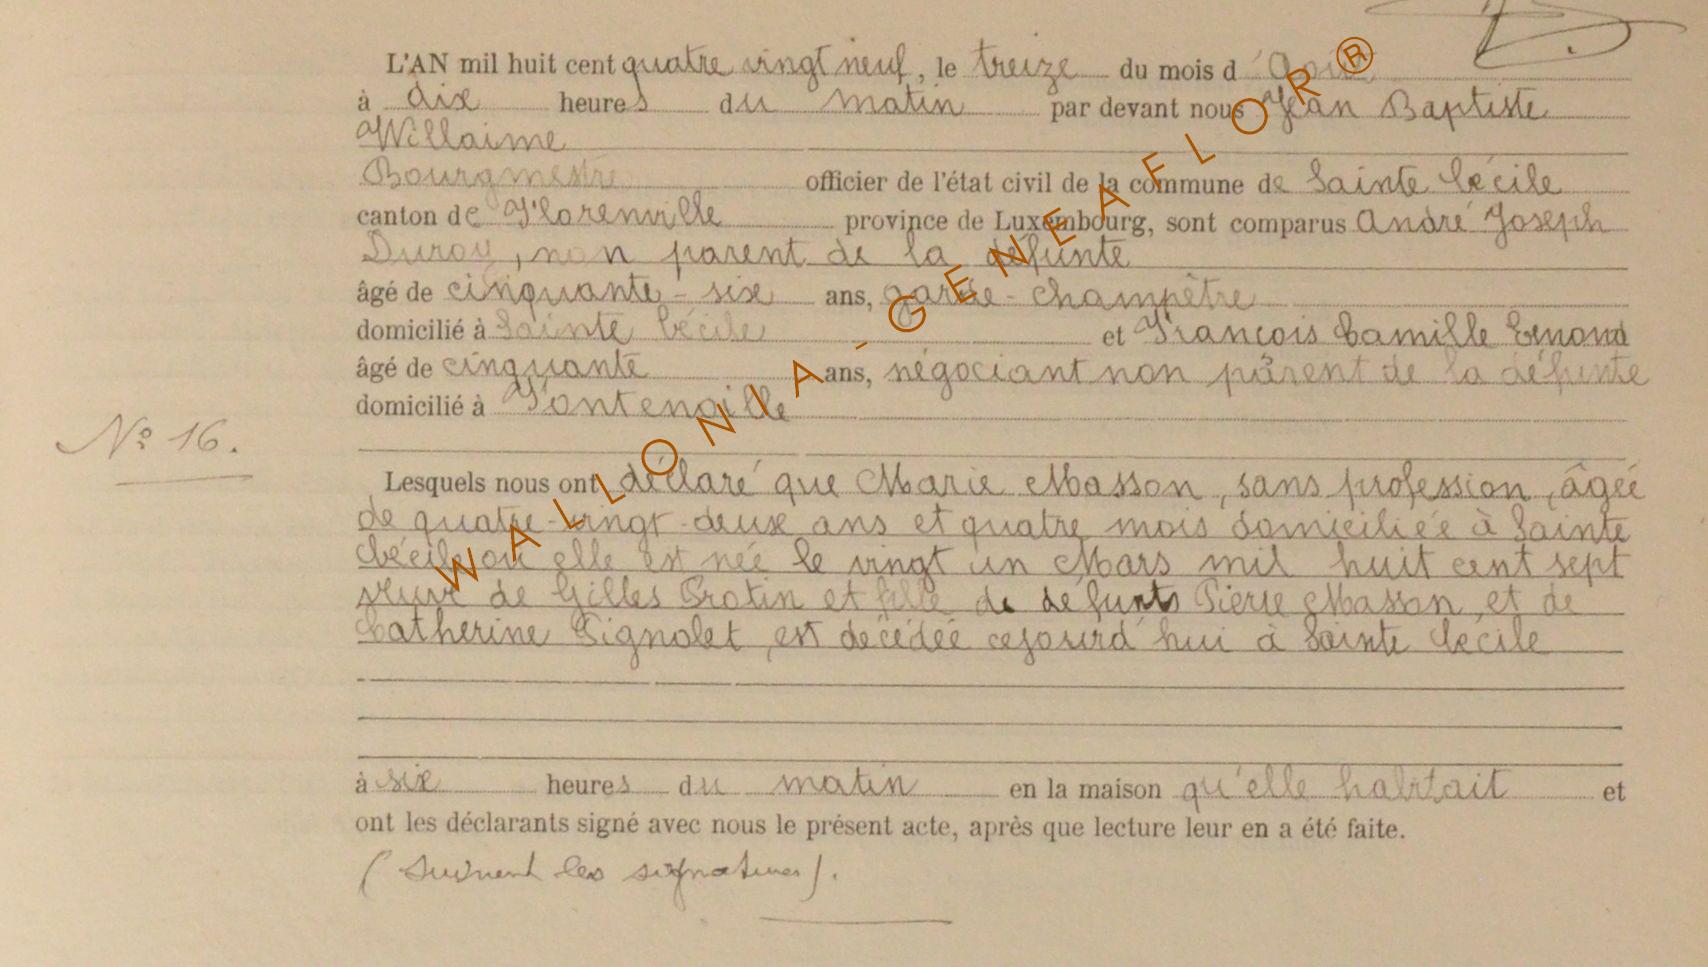 L'AN mil huit cent quatre vingt neuf, le treize du mois d'Août
à dix heures du matin par devant nous Jean Baptiste
Willaime
Bourgmestre officier de l'état civil de la commune de Sainte Cécile
canton de Florenville province de Luxembourg, sont comparus André Joseph
Duroy, non parent de la défunte
âgé de cinquante-six ans, garde-champêtre
domicilié à Sainte Cécile et François Camille Emond
âgé de cinquante ans, négociant non parent de la défunte
domicilié à Fontenoille
N° 16.
Lesquels nous ont déclaré que Marie Masson, sans profession, âgée
de quatre-vingt-deux ans et quatre mois domiciliée à Sainte
Cécile où elle est née le vingt un Mars mil huit cent sept
veuve de Gilles Protin et fille de defunts Pierre Masson et de
Catherine Pignolet, est décédée cejourd'hui à Sainte Cécile
à six heures du matin en la maison qu'elle habitait et
ont les déclarants signé avec nous le présent acte, après que lecture leur en a été faite.
(Suivent les signatures).
WALLONIA-GENEAFLOR®